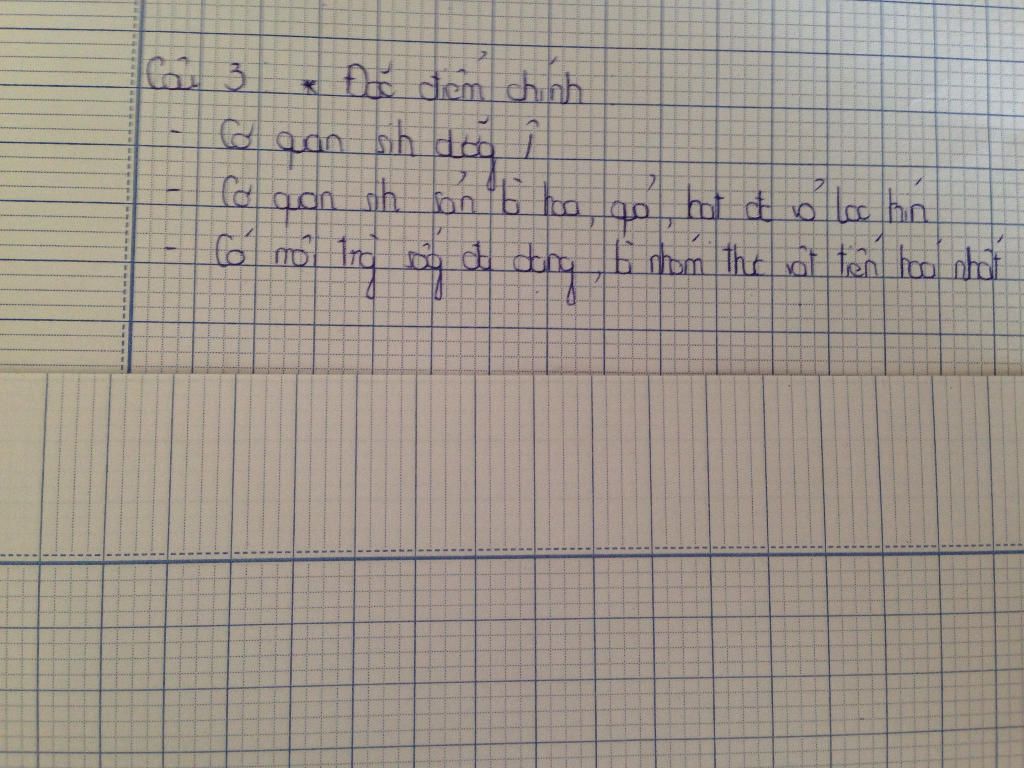 Câu 3 * Đặc điểm chính
- Cơ quan sih dưỡg
- Cơ quan sih sản là hoa, quả, hạt
- Có môi trg sốg đa dạng, là nhóm thực vật tiến hoá nhất